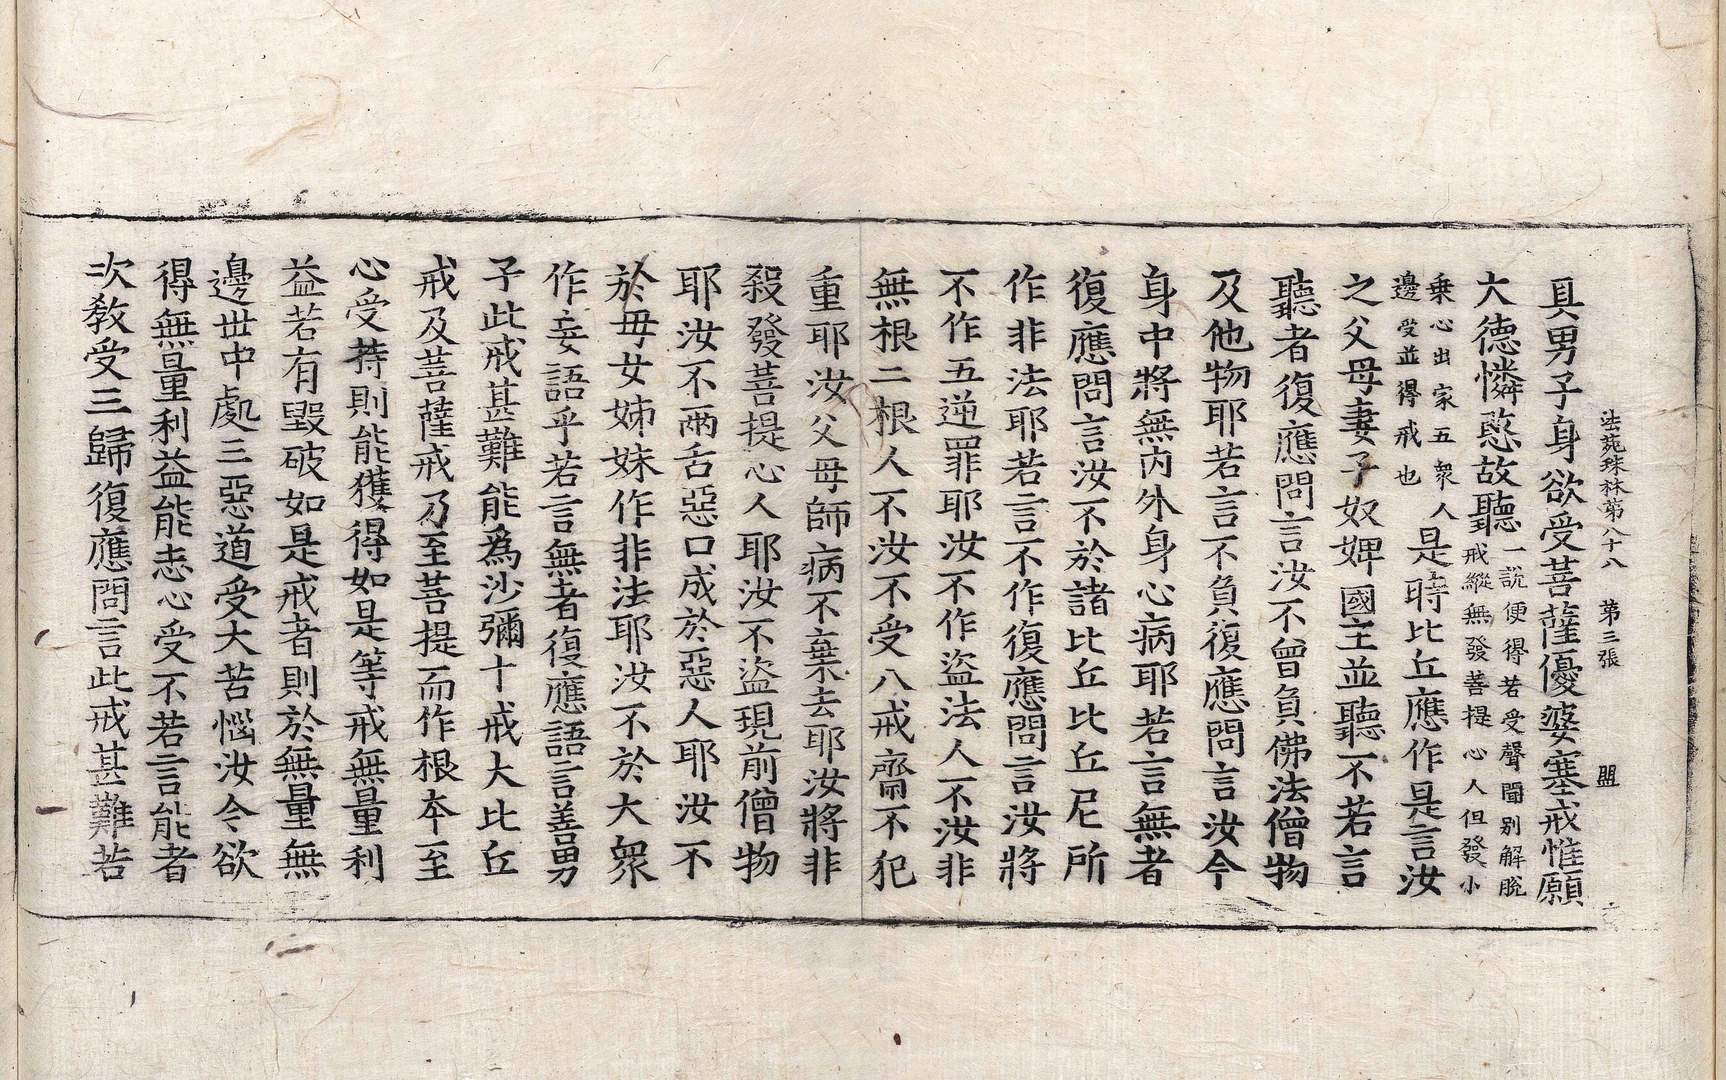 法苑珠林第八十八　第三張　盟
具男子身欲受菩薩優婆塞戒惟願
大德憐愍故聽一說便得若受聲聞別解脫戒縱無發菩提心人但發小
乗心出家五衆人邊受並得戒也是時比丘應作是言汝
之父母妻子奴婢國主並聽不若言
聽者復應問言汝不曾負佛法僧物
及他物耶若言不負復應問言汝今
身中將無內外身心病耶若言無者
復應問言汝不於諸比丘比丘尼所
作非法耶若言不作復應問言汝將
不作五逆罪耶汝不作盜法人不汝非
無根二根人不汝不受八戒齋不犯
重耶汝父母師病不棄去耶汝將非
殺發菩提心人耶汝不盜現前僧物
耶汝不兩舌惡口成於惡人耶汝不
於母女姊妹作非法耶汝不於大衆
作妄語乎若言無者復應語言善男
子此戒甚難能爲沙彌十戒大比丘
戒及菩薩戒乃至菩提而作根本至
心受持則能獲得如是等戒無量利
益若有毀破如是戒者則於無量無
邊世中處三惡道受大苦惱汝今欲
得無量利益能志心受不若言能者
次教受三歸復應問言此戒甚難若